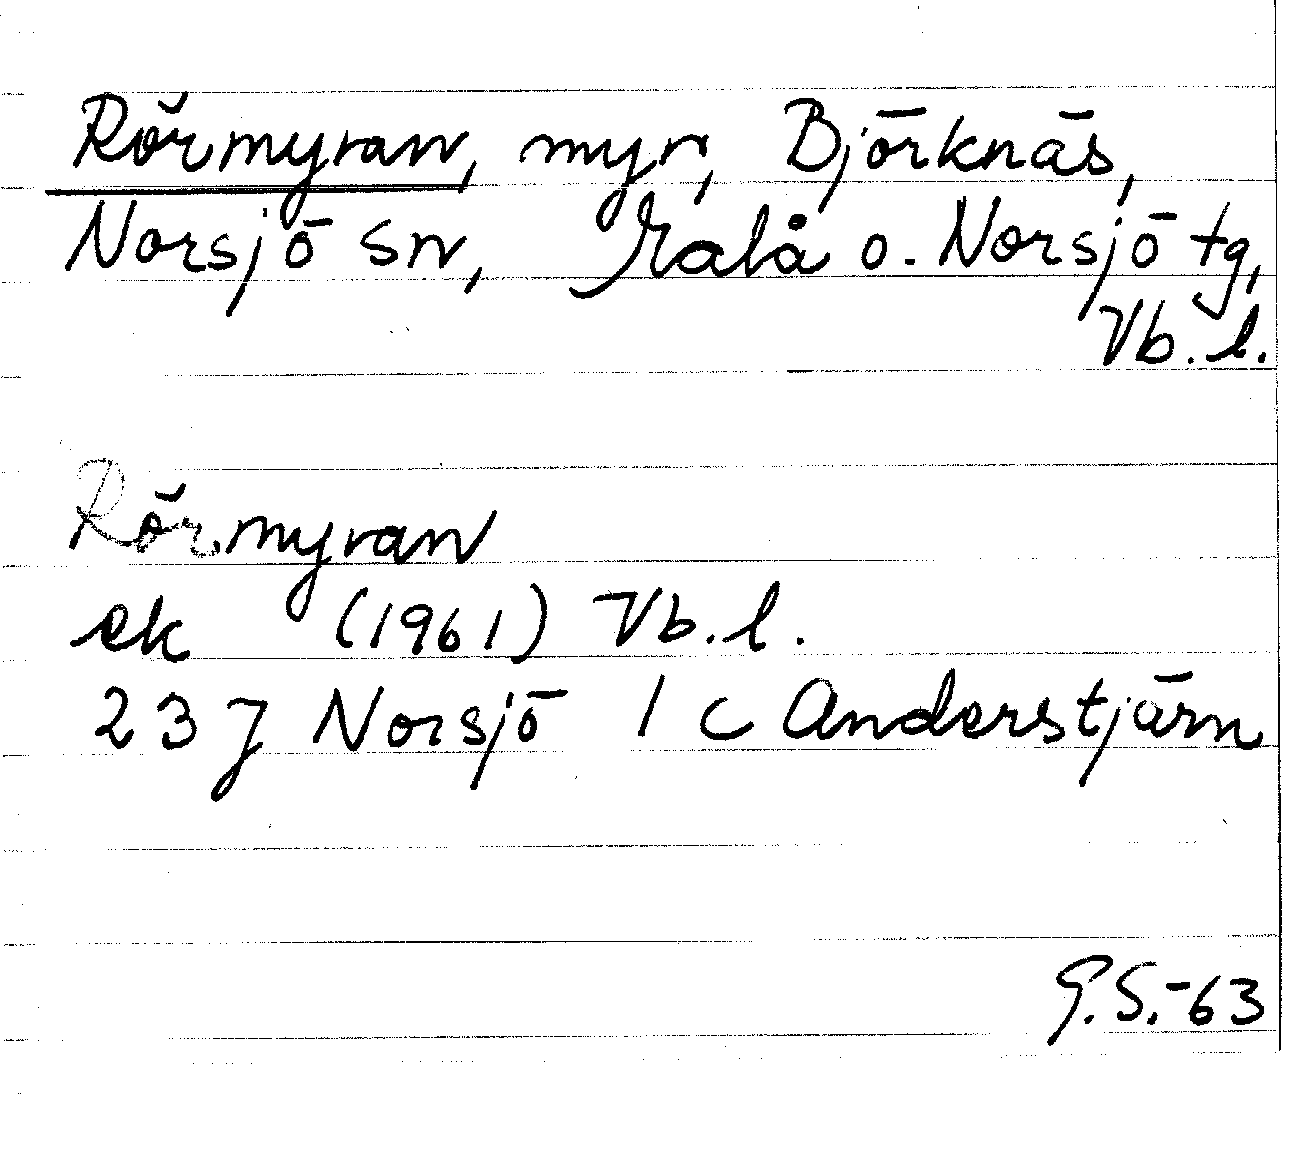 Rörmyran, myr, Björknäs,
Norsjö sn, Malå o. Norsjö tg,
Vb. l.
Rörmyran
ek (1961) Vb. l.
23 J Norsjö 1 c Anderstjärn
G.S.-63